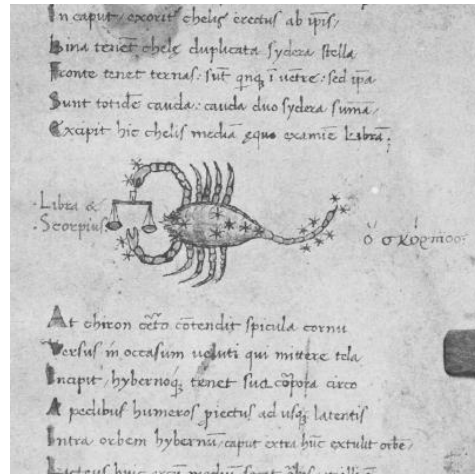 In caput, exorit chelis erectus ab ipsis,
Bina tenēt chele duplicata sydera stella
Fronte tenet ternas: sūt qnq; ī vētre: sed ipā
Sunt totidē cauda: cauda duo sydera sumā,
Excipit hic chelis mediā equo examīe Librā;
·Libra &
·Scorpius
ὁ σκόρπιος·
At chiron cōtendit spicula cornu
Versus in occasum ueluti qui mittere tela
Incipit, hybernoq; tenet sua corpora circo
A pedibus humeros, piectus ad usq; latentis
Intra orbem hybernū, caput extra hūc extulit orbē,
Lacteus huic